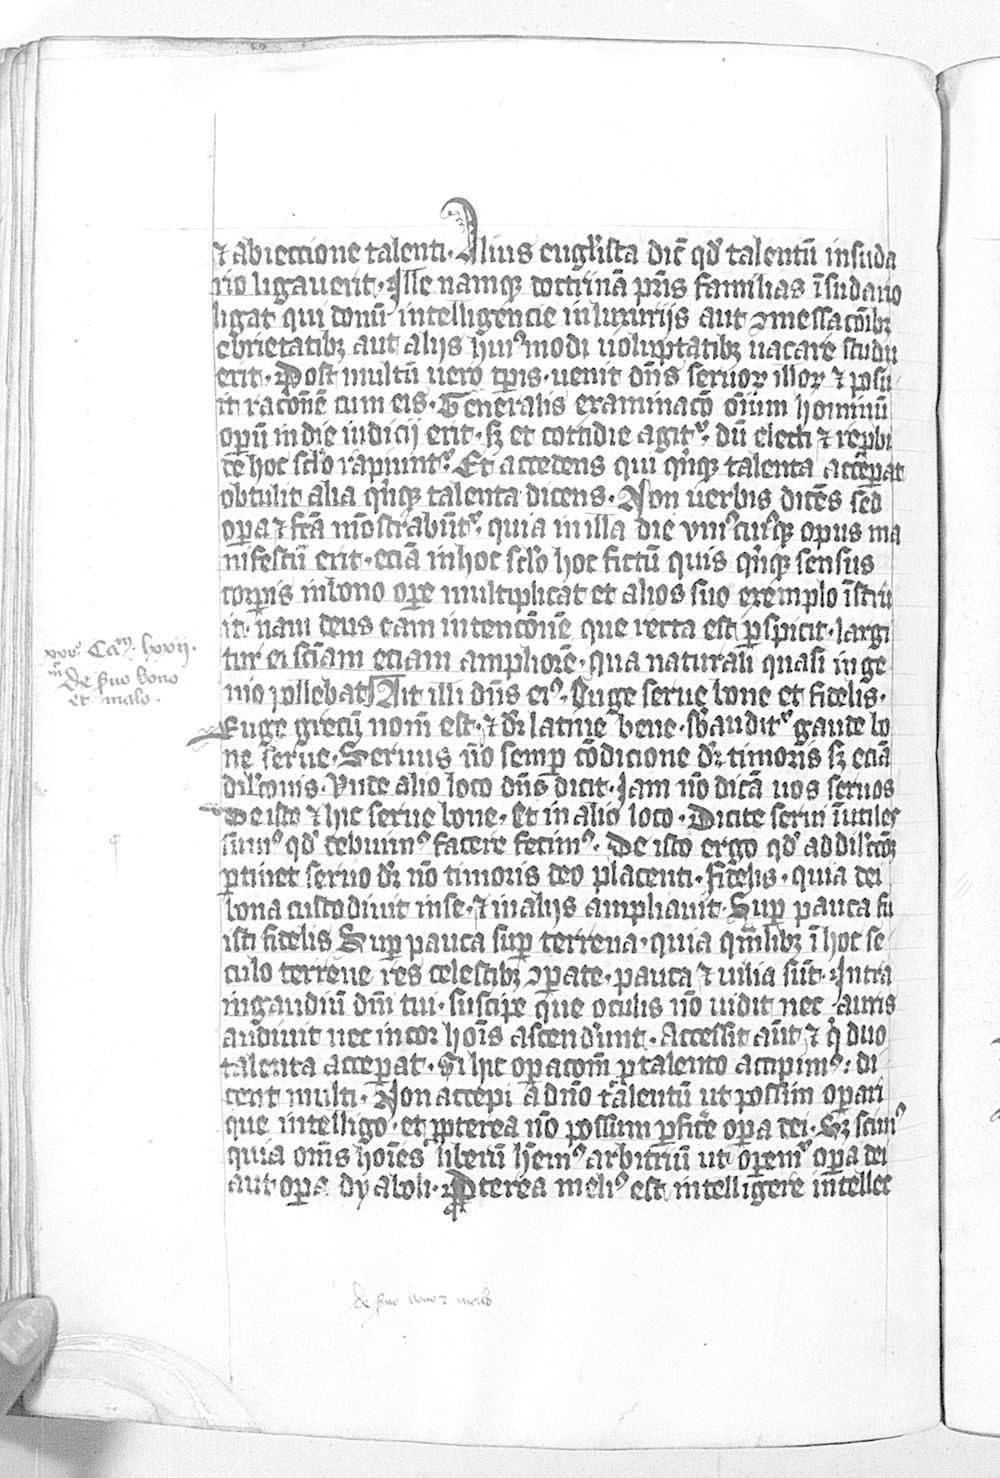 ⁊ abieccione talenti · Alius eugl̕ista dic̄ qd̕ talentū insuda
rio ligauerit · Ille namq; doctrinā pr̄is familias ī sudario
ligat qui donū intelligencie in luxurijs aut ꝯmessacōib;
ebrietatib; aut alijs hui9modi uoluptatib; uacare studu
erit · Post multū uero tp̄is · uenit dn̄s seruoꝝ illoꝝ ⁊ posu
it racōnē cum eis · Generalis examinacō om̄ium hominū
operū in die iudicij erit · sꝫ et cottidie agit᷑ · dū electi ⁊ repbi
de hoc sclo rapiunt᷑ · Et accedens qui qn̄q; talenta acceꝑat
obtulit alia qn̄q; talenta dicens · Non uerbis dicēs sed
opa ⁊ fcā mōstrabūt᷑ · quia in illa die vni9cui9q; opus ma
nifestū erit · eciā in hoc sclo hoc fictū quis qn̄q; sensus
corꝑis in bono oꝑe multiplicat et alios suo exemplo īstru
it · nam deus eam intencōnē que recta est ꝑspicit · largi
tur ei sciam eciam ampliorē · qua naturali quasi inge
nio pollebat Ait illi dn̄s ei9 · Euge serue bone et fidelis ·
Euge grecū nom̄ est · ⁊ dr̄ latine bene · sb̄audit᷑ gaude bo
ne serue · Seruus nō semꝑ cōdicione dr̄ timoris sꝫ eciā
dilcōnis · Vnde alio loco dn̄s dicit · Iam nō dicā uos seruos
De isto ⁊ hic serue bone · Et in alio loco · Dicite serui īutiles
sum9 qd̕ debuim9 facere fecim9 · De isto ergo qd̕ ad dilcōꝫ
ꝑtinet seruo dr̄ nō timoris deo placenti · fidelis · quia dei
bona custodiuit in se · ⁊ in alijs ampliauit · Suꝑ pauca fu
isti fidelis Suꝑ pauca suꝑ terrena · quia qm̄libꝫ ī hoc se
culo terrene res celestibꝫ ꝯparate · pauca ⁊ uilia sūt · Intra
in gaudiū dn̄i tui · suscipe que oculus nō uidit nec auris
audiuit nec in cor hoīs ascendr̄unt · Accessit aūt ⁊ q̇ duo
talenta acceꝑat · Si hic oꝑacom̄ ꝑ talento accipim9 : di
cent multi · Non accepi a dn̄o talentū ut possim oꝑari
que intelligo · et ꝓpterea nō possum ꝑfic̄e oꝑa dei · Sꝫ scim9
quia om̄s hoīes liberū hēm9 arbitriū ut oꝑem᷑ oꝑa dei
aut oꝑa dyaboli · Pterea meli9 est intelligere intellec
xxv9 Cam · lxxij ·
De s̄uo bono
et malo ·
de s̄uo bono ⁊ malo